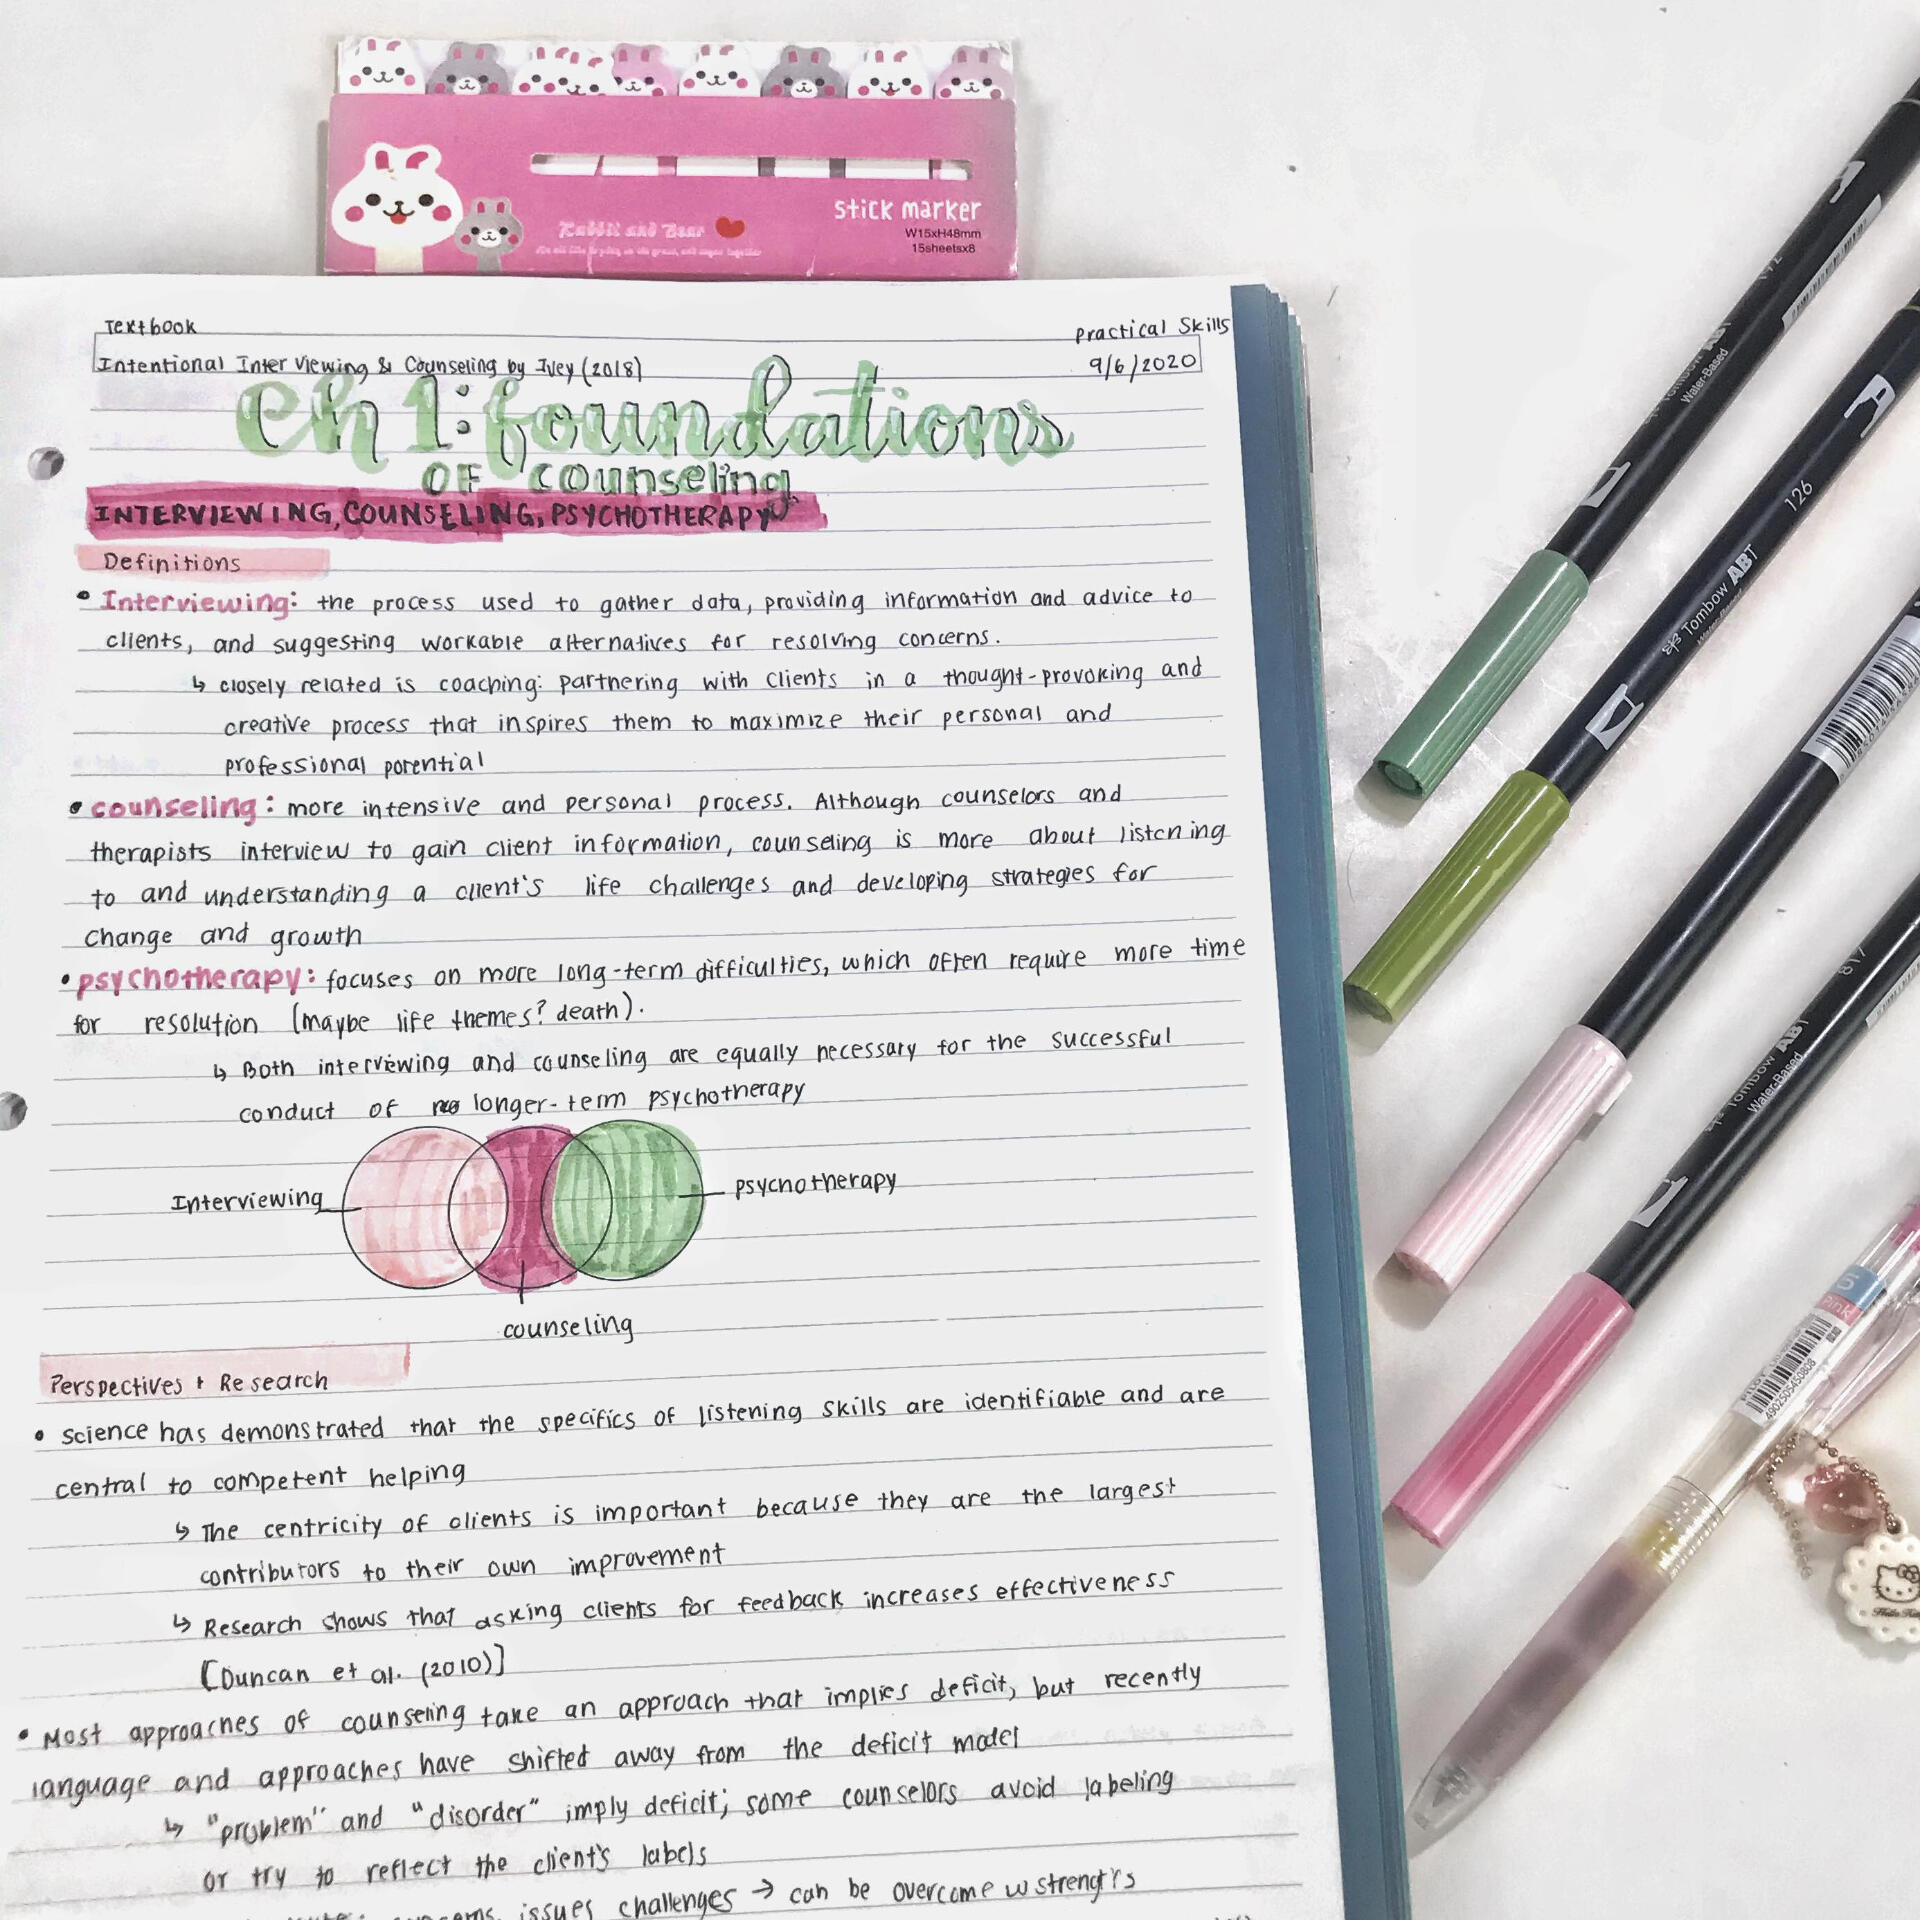 stick marker
W15xH48mm
15sheetsx8
Rabbit and Bear
Textbook
Practical Skills
Intentional Interviewing & Counseling by Ivey (2018)
9/6/2020
Ch 1: foundations
OF counseling
INTERVIEWING, COUNSELING, PSYCHOTHERAPY
Definitions
• Interviewing: the process used to gather data, providing information and advice to
clients, and suggesting workable alternatives for resolving concerns.
↳ closely related is coaching: partnering with clients in a thought-provoking and
creative process that inspires them to maximize their personal and
professional potential
• counseling: more intensive and personal process. Although counselors and
therapists interview to gain client information, counseling is more about listening
to and understanding a client's life challenges and developing strategies for
change and growth
• psychotherapy: focuses on more long-term difficulties, which often require more time
for resolution (maybe life themes? death).
↳ Both interviewing and counseling are equally necessary for the successful
conduct of longer-term psychotherapy
Interviewing
psychotherapy
counseling
Perspectives + Research
• science has demonstrated that the specifics of listening skills are identifiable and are
central to competent helping
↳ The centricity of clients is important because they are the largest
contributors to their own improvement
↳ Research shows that asking clients for feedback increases effectiveness
[Duncan et al. (2010)]
• Most approaches of counseling take an approach that implies deficit, but recently
language and approaches have shifted away from the deficit model
↳ "problem" and "disorder" imply deficit; some counselors avoid labeling
or try to reflect the client's labels
issues challenges → can be overcome w strengths
Water-Based
126
Tombow ABT
817
Tombow ABT
Water-Based
Pink
4902505450808
Hello Kitty